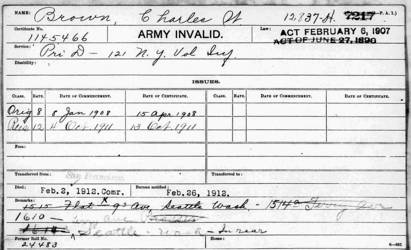 NAME: Brown, Charles W 12837-A. 7217 (P.A.I.)
Certificate No. 1145466 ARMY INVALID. Law: ACT FEBRUARY 6, 1907
ACT OF JUNE 27, 1890
Service: Pri D - 121 N.Y. Vol Inf
Disability:
ISSUES.
CLASS. RATE. DATE OF COMMENCEMENT. DATE OF CERTIFICATE. CLASS. RATE. DATE OF COMMENCEMENT. DATE OF CERTIFICATE.
Orig 8 8 Jan 1908 15 Apr 1908
12 4 Oct 1911 13 Oct 1911
Transferred from San Francisco Transferred from
Died: Feb. 2, 1912. Comr. Bureau notified: Feb. 26, 1912.
Remarks: 1515 Ave, Seattle Wash - Ave
1610 -
Seattle - Wash - In rear
Former Roll No. 24483 Home: